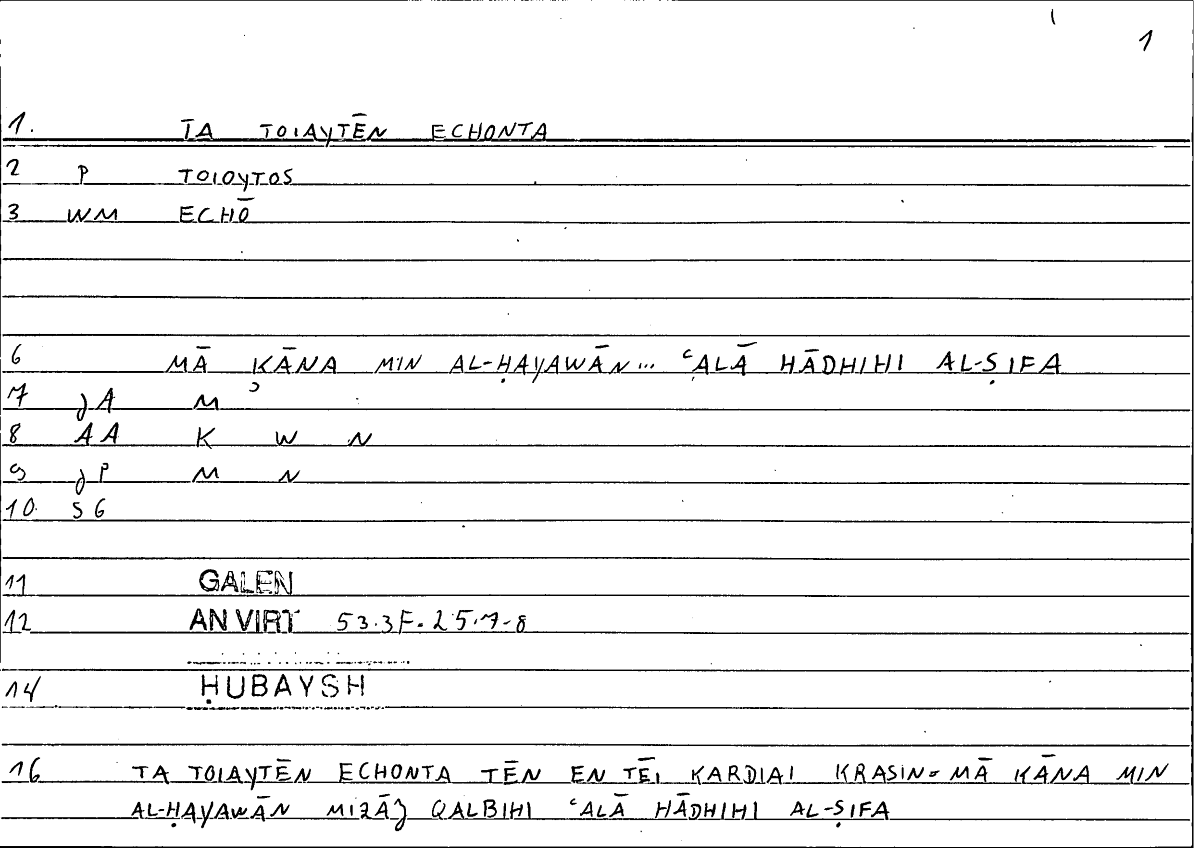 1
1. TA TOIAYTĒN ECHONTA
2 P TOIOYTOS
3 WM ECHŌ
6 MĀ KĀNA MIN AL-ḤAYAWĀN... ʿALĀ HĀDHIHI AL-ṢIFA
7 JA M ʾ
8 AA K W N
9 JP M N
10. SG
11 GALEN
12 AN VIRT 53.3F.25.7-8
14 ḤUBAYSH
16 TA TOIAYTĒN ECHONTA TĒN EN TĒI KARDIAI KRASIN = MĀ KĀNA MIN
AL-ḤAYAWĀN MIZĀJ QALBIHI ʿALĀ HĀDHIHI AL-ṢIFA